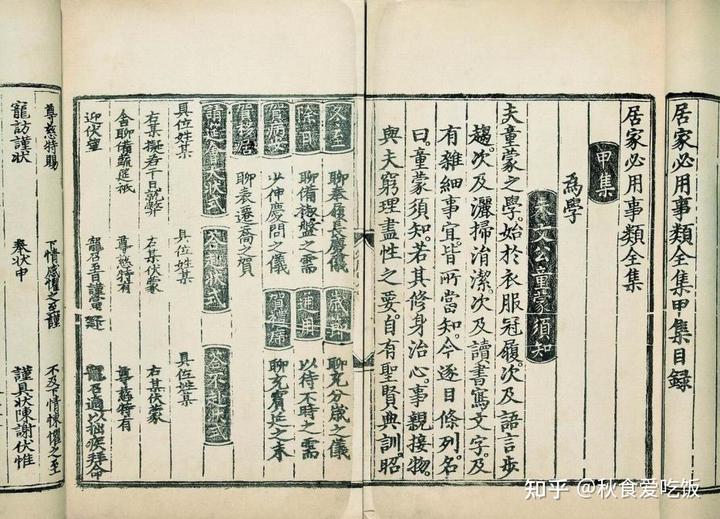 居家必用事類全集甲集目録
居家必用事類全集
甲集
為學
朱文公童蒙須知
夫童蒙之學。始於衣服冠履。次及語言步
趨。次及灑掃涓潔。次及讀書寫文字。及
有雜細事宜。皆所當知。今逐目條列。名
曰。童蒙須知。若其修身治心。事親接物。
與夫窮理盡性之要。自有聖賢典訓。昭
冬至 聊奉履長慶儀 聊充分歲之儀
除日 聊備椒盤之需 以待不時之需
賀病安 少伸慶問之儀 聊充賓筵之末
賀移居 聊表遷喬之賀
狀式 狀式 答不赴狀式
具位姓某 具位姓某 具位姓某
右某擬若干日就弊 右某伏蒙 右某伏蒙
舍聊備蔬筵祗 尊慈特有 尊慈特有
迎伏望 寵召至日謹當 寵召適以拙疾拜命
尊慈特賜 下情感懼之至謹 不及下情悚懼之至
寵訪謹狀 奉狀申 謹具狀陳謝伏惟
知乎 @秋食爱吃饭